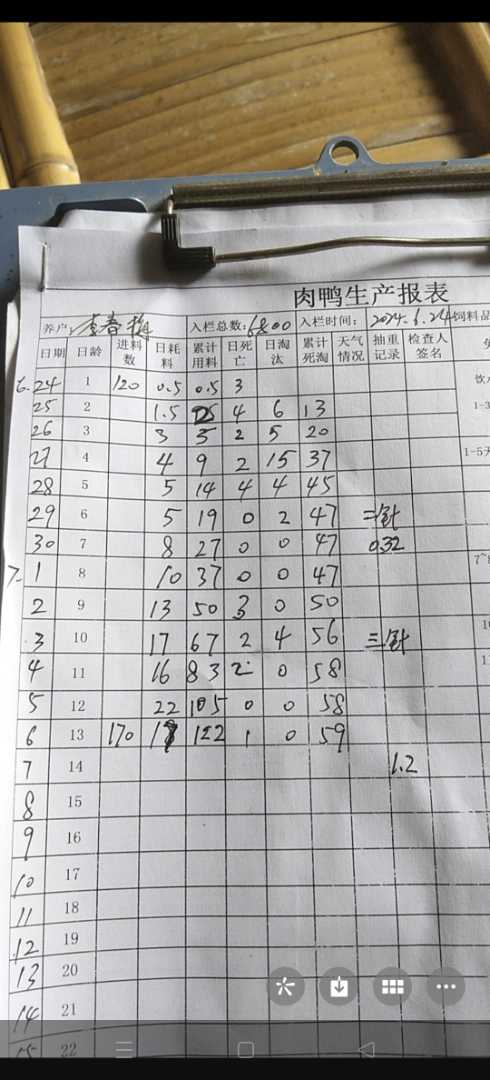 肉鸭生产报表
养户: 春梅 入栏总数: 6800 入栏时间: 2024.6.24 饲料品
日期 日龄 进料数 日耗料 累计用料 日死亡 日淘汰 累计死淘 天气情况 抽重记录 检查人签名
6.24 1 120 0.5 0.5 3 饮
25 2 1.5 4 6 13 1-3
26 3 3 5 2 5 20
27 4 4 9 2 15 37 1-5天
28 5 5 14 4 4 45
29 6 5 19 0 2 47 二针
30 7 8 27 0 0 47 0.32
7.1 8 10 37 0 0 47 7~
2 9 13 50 3 0 50
3 10 17 67 2 4 56 三针
4 11 16 83 2 0 58
5 12 22 105 0 0 58
6 13 170 122 1 0 59
7 14 1.2
8 15
9 16
10 17
11 18
12 19
13 20
14 21
15 22